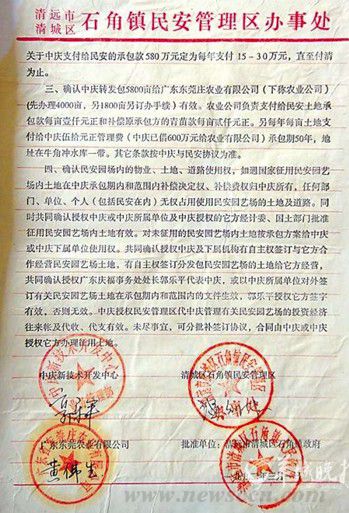 清远市
清城区 石角镇民安管理区办事处
关于中庆支付给民安的承包款580万定为每年支付15-30万元，直至付清
为止。
三、确认中庆转发包5800亩给广东东莞庄农业公司（下称农业公司）
(先办理4000亩，另1800亩另订办手续）有效。农业公司负责支付给民安土地承
包款每亩壹仟元正和补偿原承包方的青苗款每亩贰仟元正。另每年每亩土地支
付给中庆伍拾元正管理费（中庆已借600万元给农业公司）承包期50年，地
址在牛角冲水库一带。其它条款按中庆与民安协议为准。
四、确认民安园场内的物业、土地、道路使用权，如遇国家征用民安园艺
场内土地在中庆承包期内和范围内补偿决定权、补偿费权归中庆所有，任何部
门、单位、个人（包括民安在内）无权占用使用民安园艺场的土地及道路。同
时共同确认授权中庆或中庆所属单位及中庆授权的它方经计委、国土部门批准
征用民安园艺场内土地有效。对未征用的民安园艺场内土地按承包方案给中庆
或中庆下属单位使用权。共同确认授权中庆及下属机构有自主权签订与它方合
作经营民安园艺场的土地，有自主权签订分发包民安园艺场的土地给它方经营，
共同确认授权广东庆福事务处处长郭乐平代表中庆，或以中庆所属单位对外签
订有关民安园艺场土地在承包期内和范围内的文件生效，郭乐平授权它方签字
有效，否则无效。中庆授权民安管理区代中庆管理有关民安园艺场的投资经济
往来帐及代收、代支有效。未尽事宜，可分批补签协议，合同由中庆或中庆
授权它方办理征用土地。
中庆新技术开发中心 清城区石角镇民安管理区
广东东莞农业有限公司 批准单位：清远市清城区石角镇政府
黄伟生